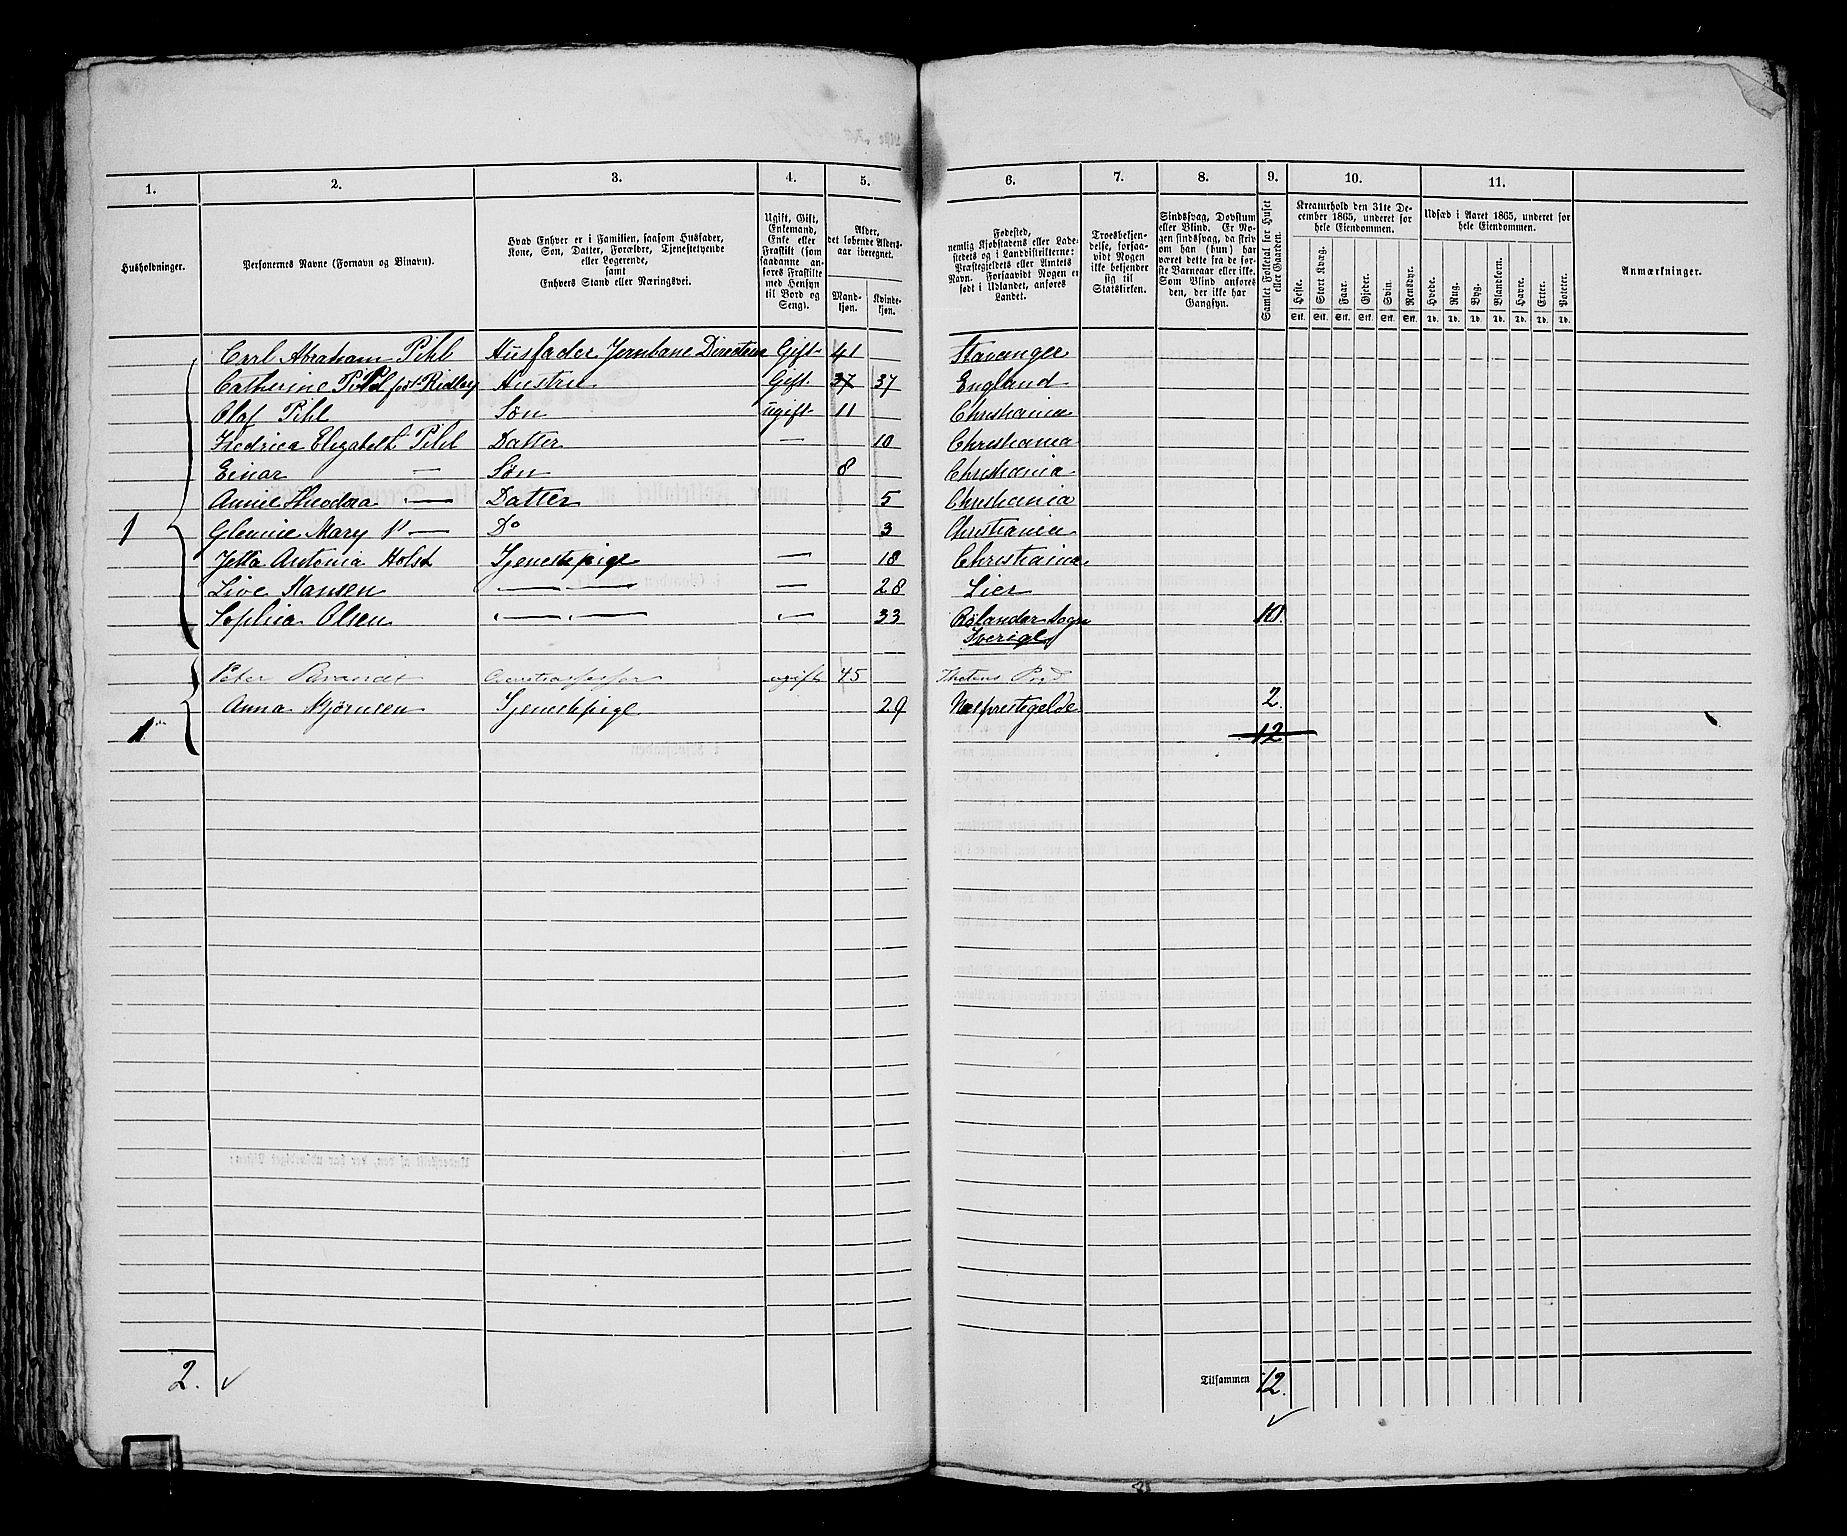 1. 2. 3. 4. 5. 6. 7. 8. 9. 10. 11.
Husholdninger.
Personernes Navne (Fornavn og Binavn).
Hvad Enhver er i Familien, saasom Husfader,
Kone, Søn, Datter, Forældre, Tjenestetyende
eller Logerende,
samt
Enhvers Stand eller Næringsvei.
Ugift, Gift,
Enkemand,
Enke eller
Fraskilt (som
saadanne an-
føres Fraskilte
med Hensyn
til Bord og
Seng).
Alder,
det løbende Alders-
aar iberegnet.
Mand-
kjøn.
Kvinde-
kjøn.
Fødested,
nemlig Kjøbstadens eller Lade-
stedets og i Landdistrikterne:
Præstegjeldets eller Annexets
Navn. Forsaavidt Nogen er
født i Udlandet, anføres
Landet.
Troesbekjen-
delse, forsaa-
vidt Nogen
ikke bekjender
sig til
Statskirken.
Sindssvag, Døvstum
eller Blind. Er No-
gen sindssvag, da skriv
om han (hun) har
været dette fra de før-
ste Barneaar eller ikke.
Som Blind anføres
den, der ikke har
Gangsyn.
Samlet Folketal for Huset
eller Gaarden.
Kreaturhold den 31te De-
cember 1865, underet for
hele Eiendommen.
Heste. Stort Kvæg. Faar. Gjeder. Svin. Rensdyr.
Stk. Stk. Stk. Stk. Stk. Stk.
Udsæd i Aaret 1865, underet for
hele Eiendommen.
Hvede. Rug. Byg. Blandkorn. Havre. Erter. Poteter.
Td. Td. Td. Td. Td. Td. Td.
Anmærkninger.
Carl Abraham Pihl Husfader Jernbane Directeur Gift 41 Stavanger
Catherine Pihl født Ridley Hustru Gift. 37 37 England
Olaf Pihl Søn ugift 11 Christiania
Fredrica Elizabeth Pihl Datter — 10 Christiania
Einar — Søn 8 Christiania
Annie Theodora — Datter 5 Christiania
1 Glennie Mary — Do 3 Christiania
Jetta Antonia Holst Tjenestepige — 18 Christiania
Live Hansen — — — 28 Lier
Sophia Olsen — — — 33 Rølander Sogn 10.
Sverige
Peter Brandt ugift 45
Anna Bjørnsen Tjenestepige 29 Næsprestegelde 2.
1 12
2. Tilsammen 12.